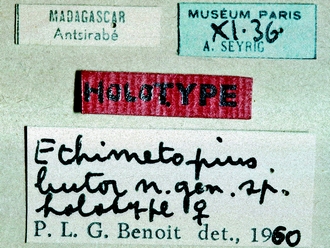 MADAGASCAR
Antsirabé
MUSÉUM PARIS
XI.36
A. SEYRIG
HOLOTYPE
Echimetopius
butor n.gen.sp.
holotype ♀
P. L. G. Benoit det., 1960